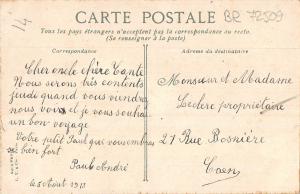 14
CARTE POSTALE
BR 72509
Tous les pays étrangers n'acceptent pas la correspondance au recto.
(Se renseigner à la poste)
Correspondance
Cher oncle chère Tante
Nous serons très contents
jeudi quand vous viendrez
nous voir et je vous souhaite
un bon voyage
Votre petit Paul qui vous embrasse
bien fort
Paul André
le 5 Août 1911
Adresse du destinataire
Monsieur et Madame
Leclerc propriétaire
27 Rue Bosnière
Caen